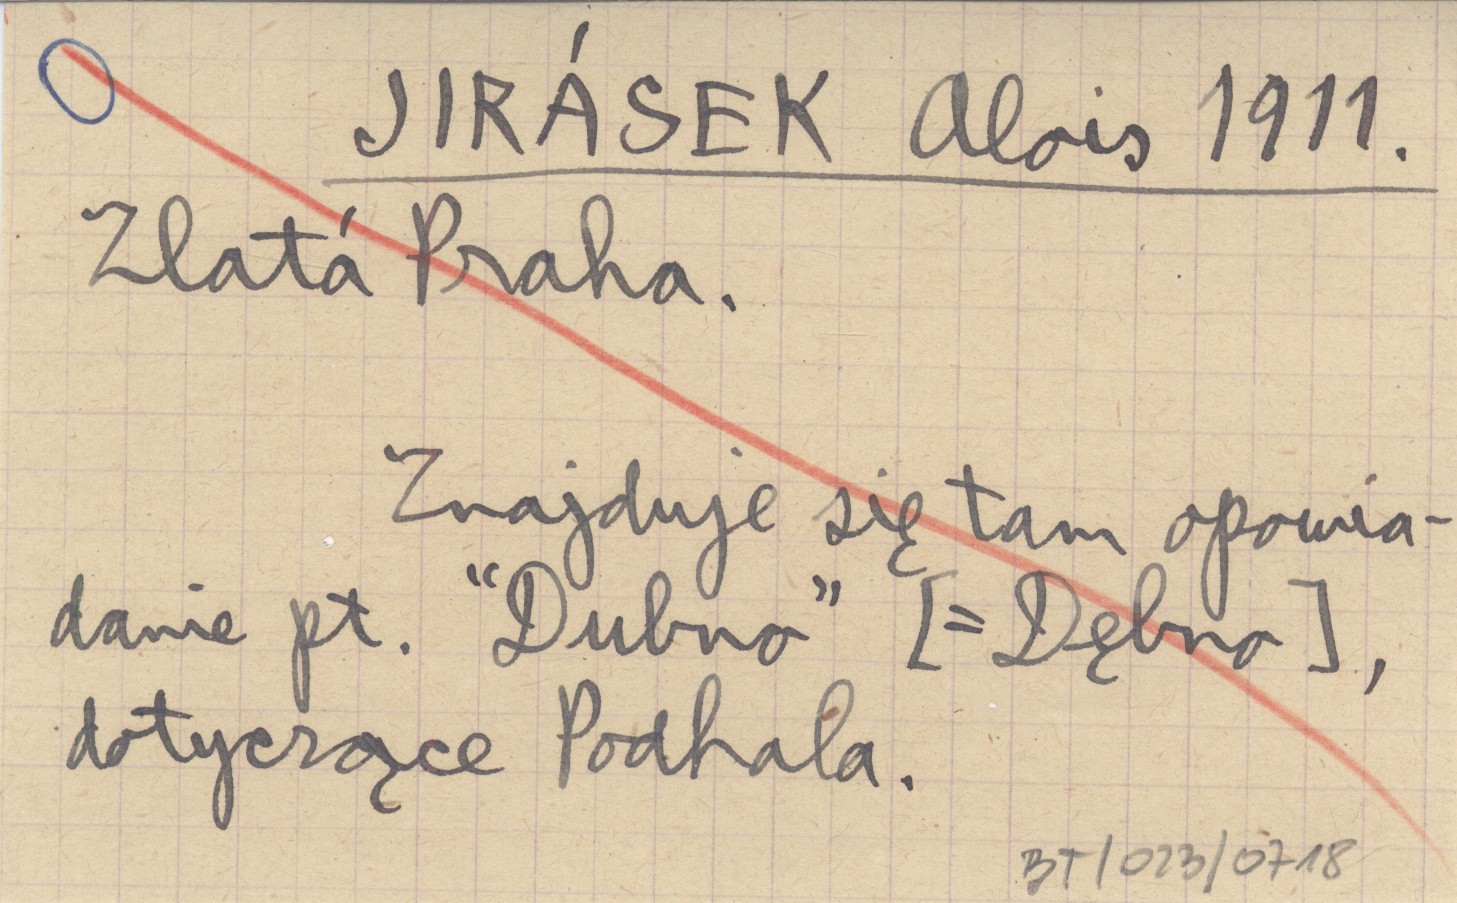 JIRÁSEK Alois 1911.
Zlatá Praha.
Znajduje się tam opowia-
danie pt. “Dubno” [= Dębno],
dotyczące Podhala.
BT/023/0718